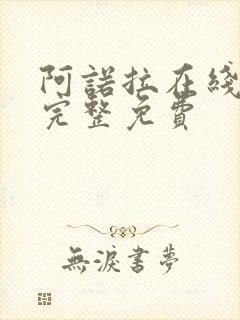 阿諾拉在綫
完整免費
無淚書夢